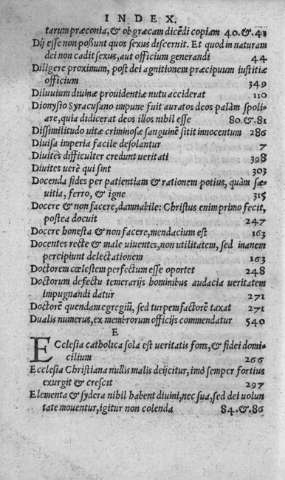 INDEX.
tarum præconia, & ob græcam dicēdi copiam 40. & 41
Dij esse non possunt quos sexus discernit. Et quod in naturam
dei non cadit sexus, aut officium generandi 44
Diligere proximum, post dei agnitionem præcipuum iustitiæ
officium 349
Diluuium diuinæ prouidentiæ nutu acciderat 110
Dionysio Syracusano impune fuit auratos deos palàm spoli-
are, quia didicerat deos illos nihil esse 80. & 81
Dissimilitudo uitæ criminosæ sanguinē sitit innocentum 286
Diuisa imperia facile desolantur 7
Diuites difficulter credunt ueritati 398
Diuites uerè qui sint 303
Docenda fides per patientiam & rationem potius, quàm sæ-
uitia, ferro, & igne 315
Docere & non facere, damnabile: Christus enim primo fecit,
postea docuit 247
Docere honesta & non facere, mendacium est 163
Docentes recte & male uiuentes, non utilitatem, sed inanem
percipiunt delectationem 163
Doctorem cœlestem perfectum esse oportet 248
Doctorum defectu temerarijs hominibus audacia ueritatem
impugnandi datur 271
Doctorē quendam egregiū, sed turpem factorē taxat 271
Dualis numerus, ex membrorum officijs commendatur 540
E
Ecclesia catholica sola est ueritatis fons, & fidei domi-
cilium 266
Ecclesia Christiana nullis malis deijcitur, imò semper fortius
exurgit & crescit 297
Elementa & sydera nihil habent diuini, nec sua, sed dei uolun
tate mouentur, igitur non colenda 84. & 86